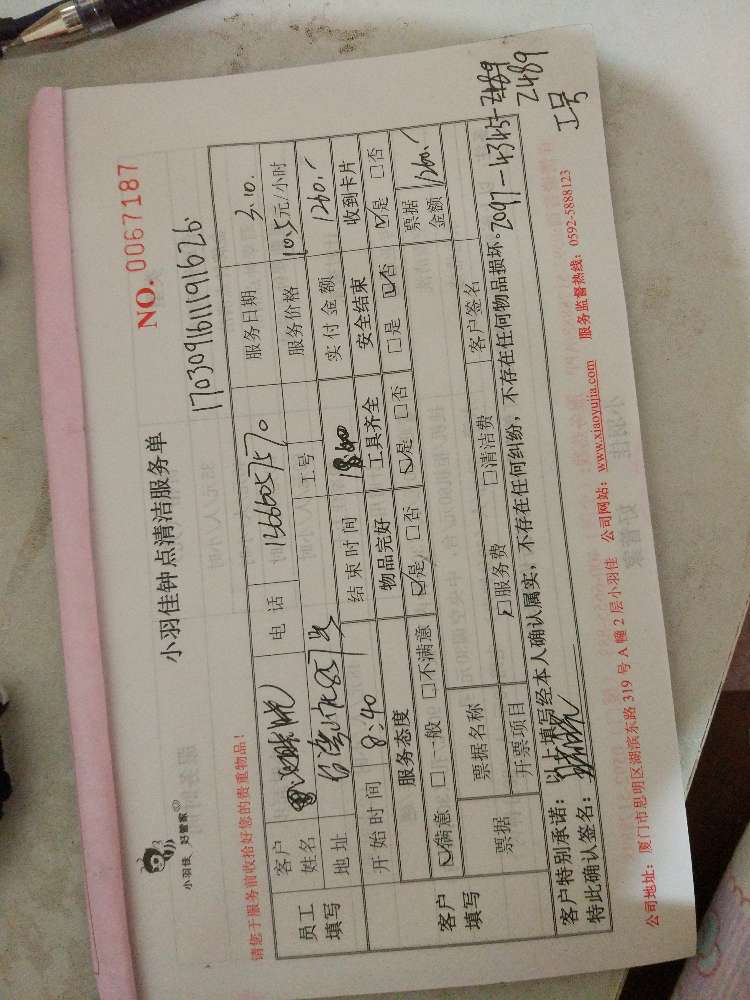 小羽佳 好管家
小羽佳钟点清洁服务单
NO. 0067187
请您于服务前收拾好您的贵重物品！
17030916111191626.
员工填写
客户姓名
电话
服务日期 3.10.
地址
工号
服务价格 10.5元/小时
开始时间 8:40
结束时间
实付金额 1260.
客户填写
服务态度 物品完好 工具齐全 安全结束 收到卡片
☑满意 □一般 □不满意 ☑是 □否 ☑是 □否 □是 ☑否 ☑是 □否
票据 票据名称 票据金额 1260.
开票项目 ☑服务费 □清洁费 客户签名
客户特别承诺：以上填写经本人确认属实，不存在任何纠纷，不存在任何物品损坏.
特此确认签名：
2097-4345-2489
2489
工号
公司地址：厦门市思明区湖滨东路 319 号 A 幢 2 层小羽佳 公司网站：www.xiaoyujia.com 服务监督热线：0592-5888123